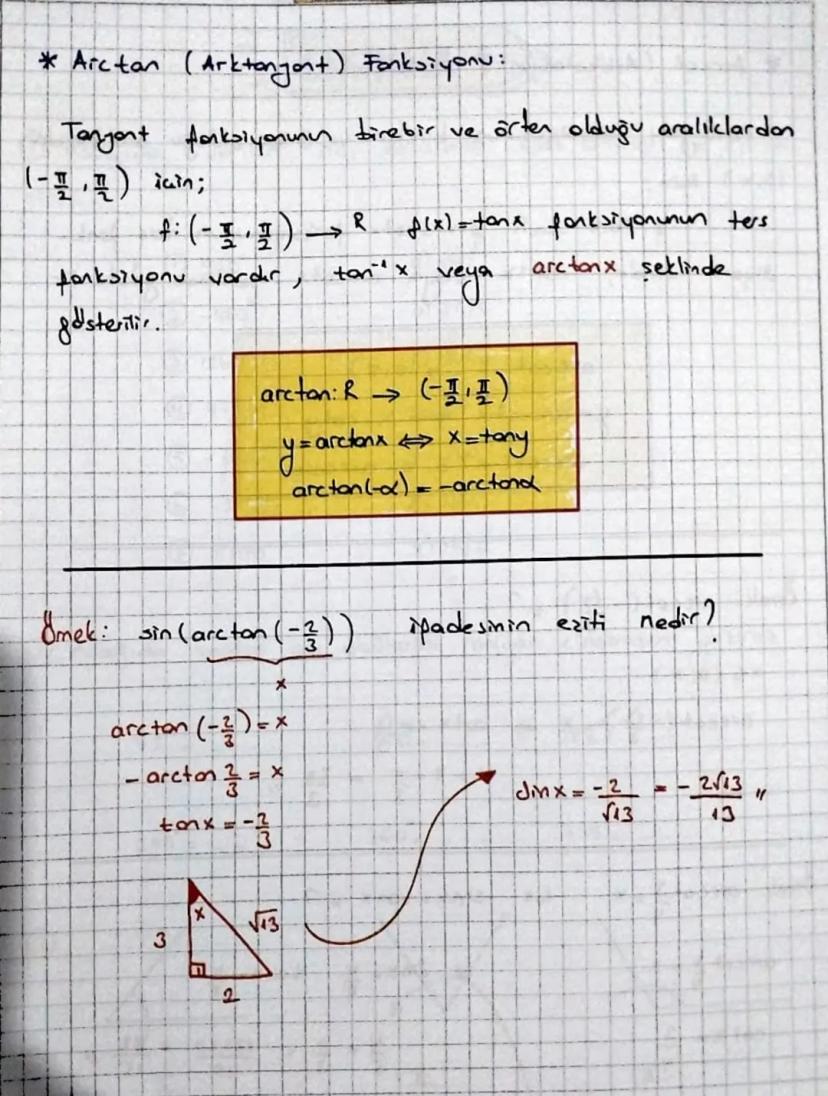 * Arctan (Arktanjant) Fonksiyonu:
Tanjant fonksiyonunun birebir ve örten olduğu aralıklardan
(-π/2, π/2) için;
f: (-π/2, π/2) → R f(x)=tanx fonksiyonunun ters
fonksiyonu vardır, tan⁻¹x veya arctanx şeklinde
gösterilir.
arctan: R → (-π/2, π/2)
y=arctanx ⇔ x=tany
arctan(-α) = -arctanα
Örnek: sin(arctan(-2/3)) ifadesinin eşiti nedir?
x
arctan(-2/3)=x
-arctan 2/3 = x
tanx = -2/3
sinx = -2/√13 = -2√13/13 //
x
3
√13
2